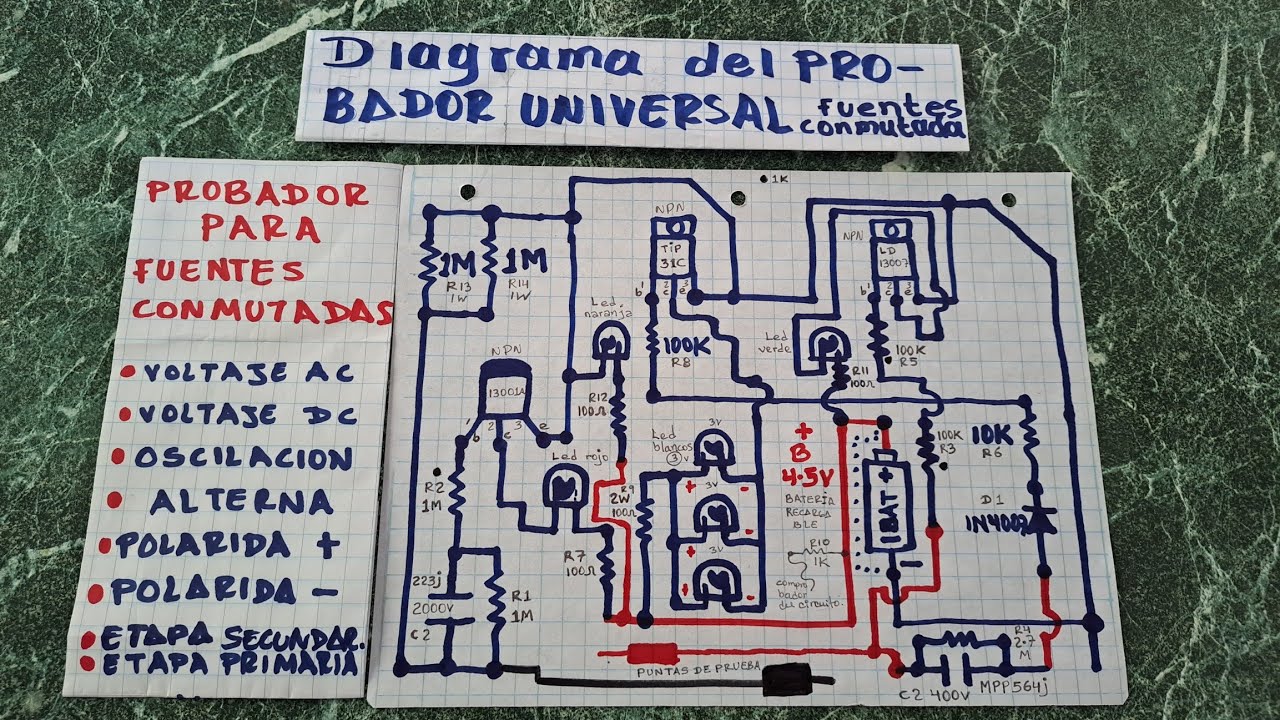 DIAgrAmA del PRO-
BADOR UNIVERSAL fuentes
conmutada
PROBADOR
PARA
FUENTES
CONMUTADAS
• VOLTAJE AC
• VOLTAJE DC
• OSCILACION
• ALTERNA
• POLARIDA +
• POLARIDA -
• ETAPA SECUNDAR.
• ETAPA PRIMARIA
• 1K
NPN
TiP
31C
1 2 3
b c e
NPN
LD
13007
1 2 3
b c e
1M
R13
1W
1M
R14
1W
Led.
naranja
100K
R8
Led
verde
100K
R5
R11
100Ω
NPN
13001A
1 2 3
b c e
R12
100Ω
Led rojo
Led
blancos
③ v
3V
+ -
3V
+ -
3V
+ -
+
B
4.5V
BATERIA
RECARGA
BLE
1BAT +
-
100K
R3
10K
R6
D1
1N4007
R2
1M
R9
2W
100Ω
R7
100Ω
R10
1K
compro
bador
del circuito.
223j
2000V
C2
R1
1M
R4
2.7
M
PUNTAS DE PRUEBA
C2 400V MPP564j